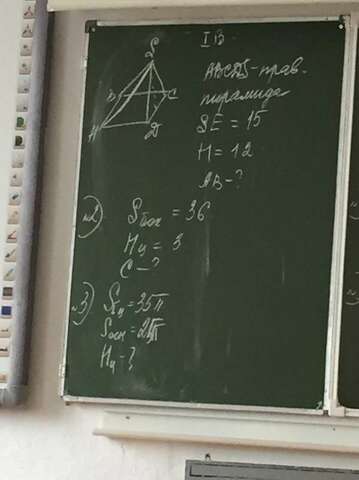 I В
ABCDS - прав.
пирамида
SE = 15
H = 12
AB - ?
S
B
C
A
D
№2) Sбок = 36
Hц = 3
C - ?
№3)
Sосн =
Hц - ?